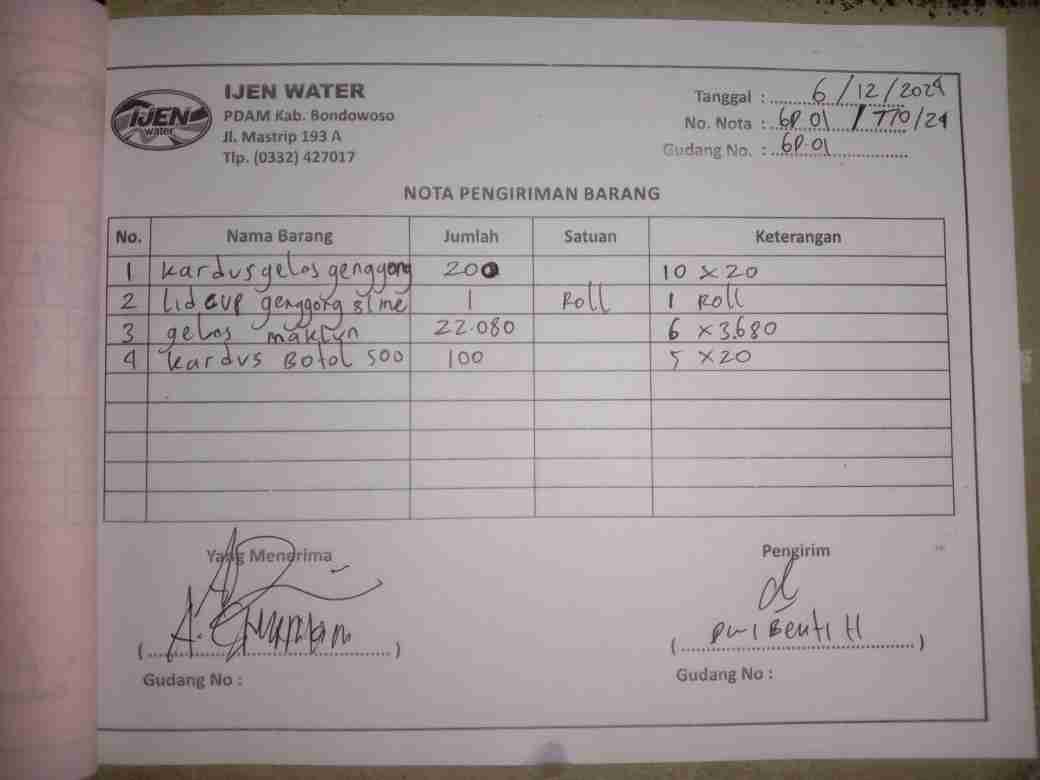 IJEN water
IJEN WATER
PDAM Kab. Bondowoso
Jl. Mastrip 193 A
Tlp. (0332) 427017
Tanggal : 6/12/2024
No. Nota : GP 01 / TTO/24
Gudang No. : GP.01
NOTA PENGIRIMAN BARANG
No. Nama Barang Jumlah Satuan Keterangan
1 kardus gelas genggong 200 10 x 20
2 Lid cup genggong slime 1 Roll 1 Roll
3 gelas maktun 22.080 6 x 3.680
4 kardus Botol 500 100 5 x 20
Yang Menerima Pengirim
(A. ) ( H )
Gudang No : Gudang No :